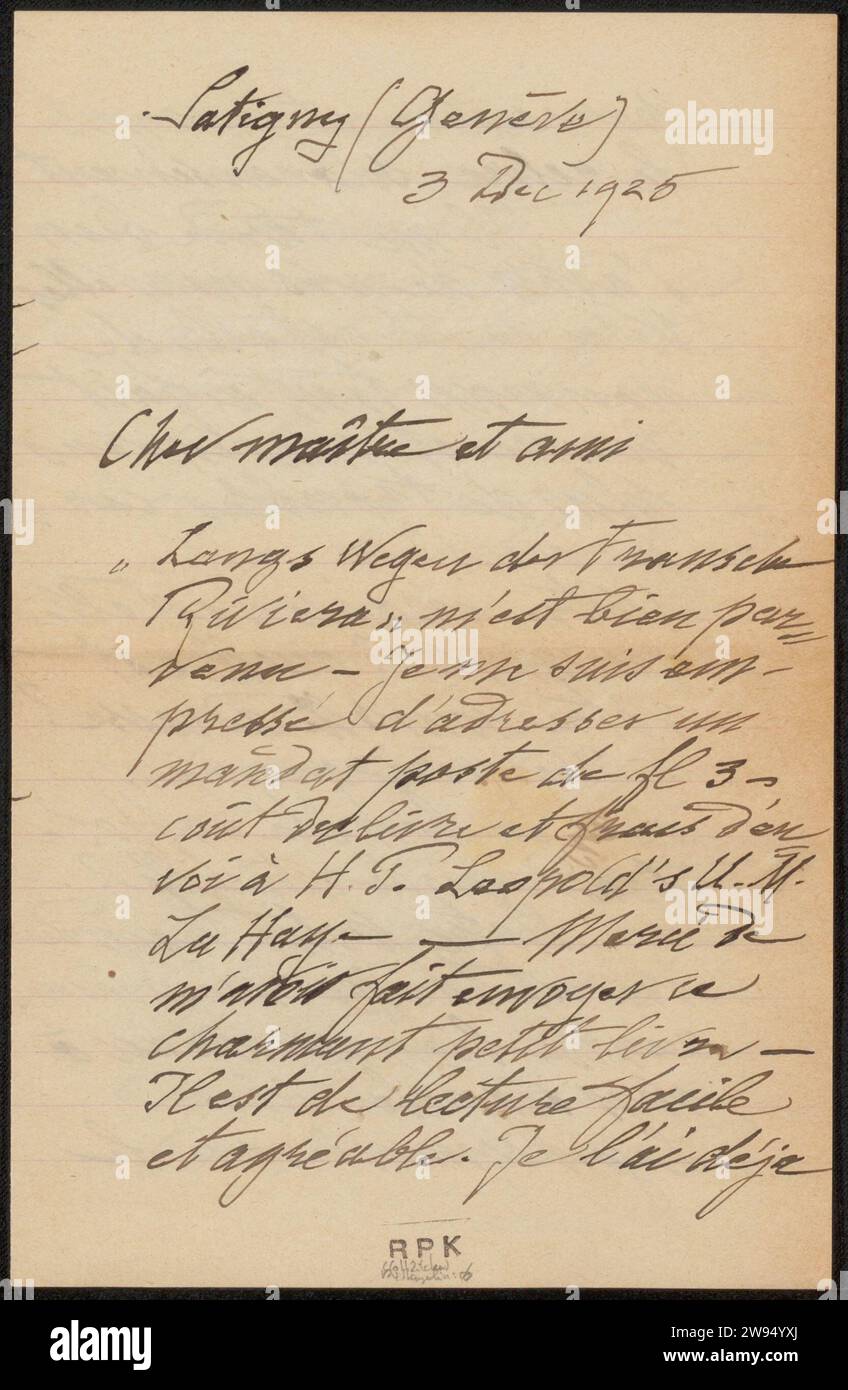 Satigny (Genève)
3 Dec 1925
Cher maître et ami
„ Langs Wegen der Fransche
Riviera„ m'est bien par=
venu — Je me suis em-
pressé d'adresser un
mandat poste de fl 3 -
coût du livre et frais d'en=
voi à H. P. Leopold's U. M.
La Haye — Merci de
m'avoir fait envoyer ce
charmant petit livre —
Il est de lecture facile
et agréable. Je l'ai déjà
RPK
alamy
Image ID: 2W94YXJ
www.alamy.com